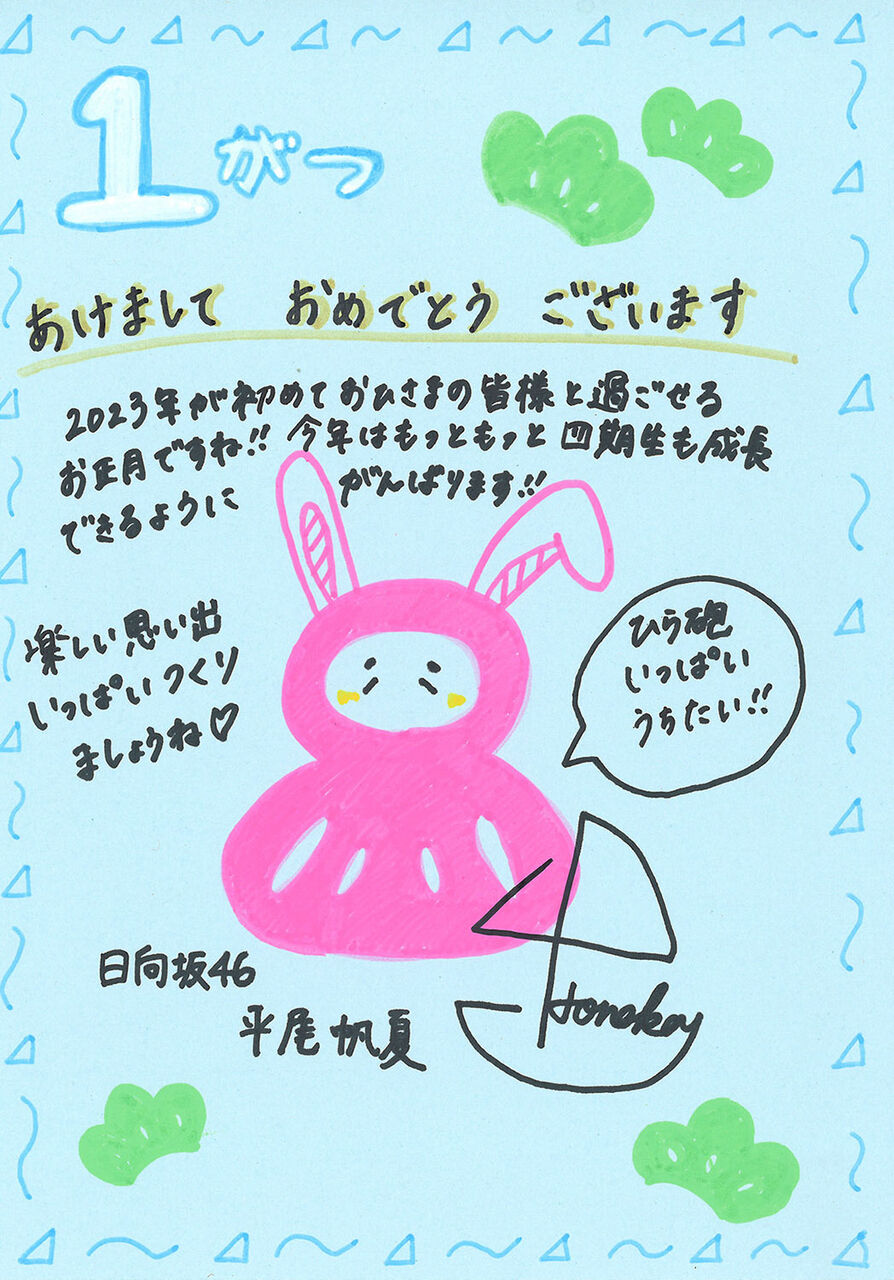 1がつ
あけまして おめでとう ございます
2023年が初めておひさまの皆様と過ごせる
お正月ですね!! 今年はもっともっと四期生も成長
できるように がんばります!!
楽しい思い出
いっぱいつくり
ましょうね♡
ひら砲
いっぱい
うちたい!!
日向坂46
平尾帆夏
Honoka